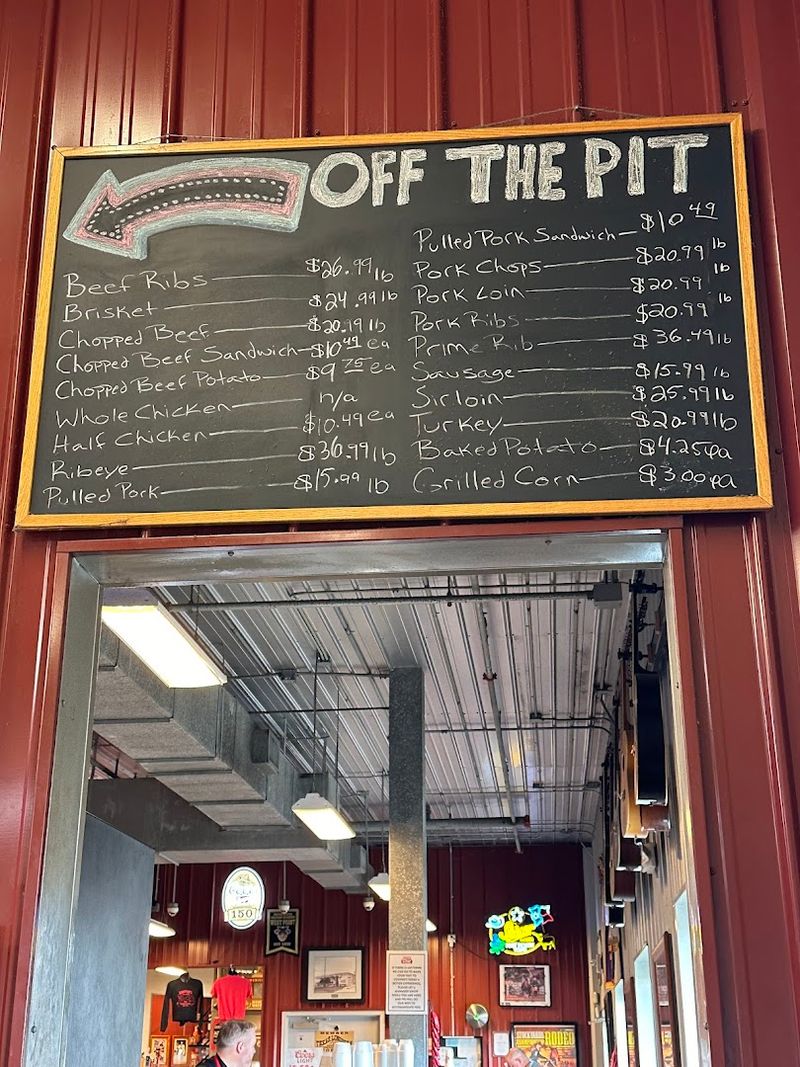 OFF THE PIT
Beef Ribs $26.99 lb
Brisket $24.99 lb
Chopped Beef $20.99 lb
Chopped Beef Sandwich $10.49 ea
Chopped Beef Potato $9.75 ea
Whole Chicken n/a
Half Chicken $10.49 ea
Ribeye $36.99 lb
Pulled Pork $15.99 lb
Pulled Pork Sandwich $10.49
Pork Chops $20.99 lb
Pork Loin $20.99 lb
Pork Ribs $20.99 lb
Prime Rib $36.49 lb
Sausage $15.99 lb
Sirloin $25.99 lb
Turkey $20.99 lb
Baked Potato $4.25 ea
Grilled Corn $3.00 ea
150
RODEO
Coors
LIGHT